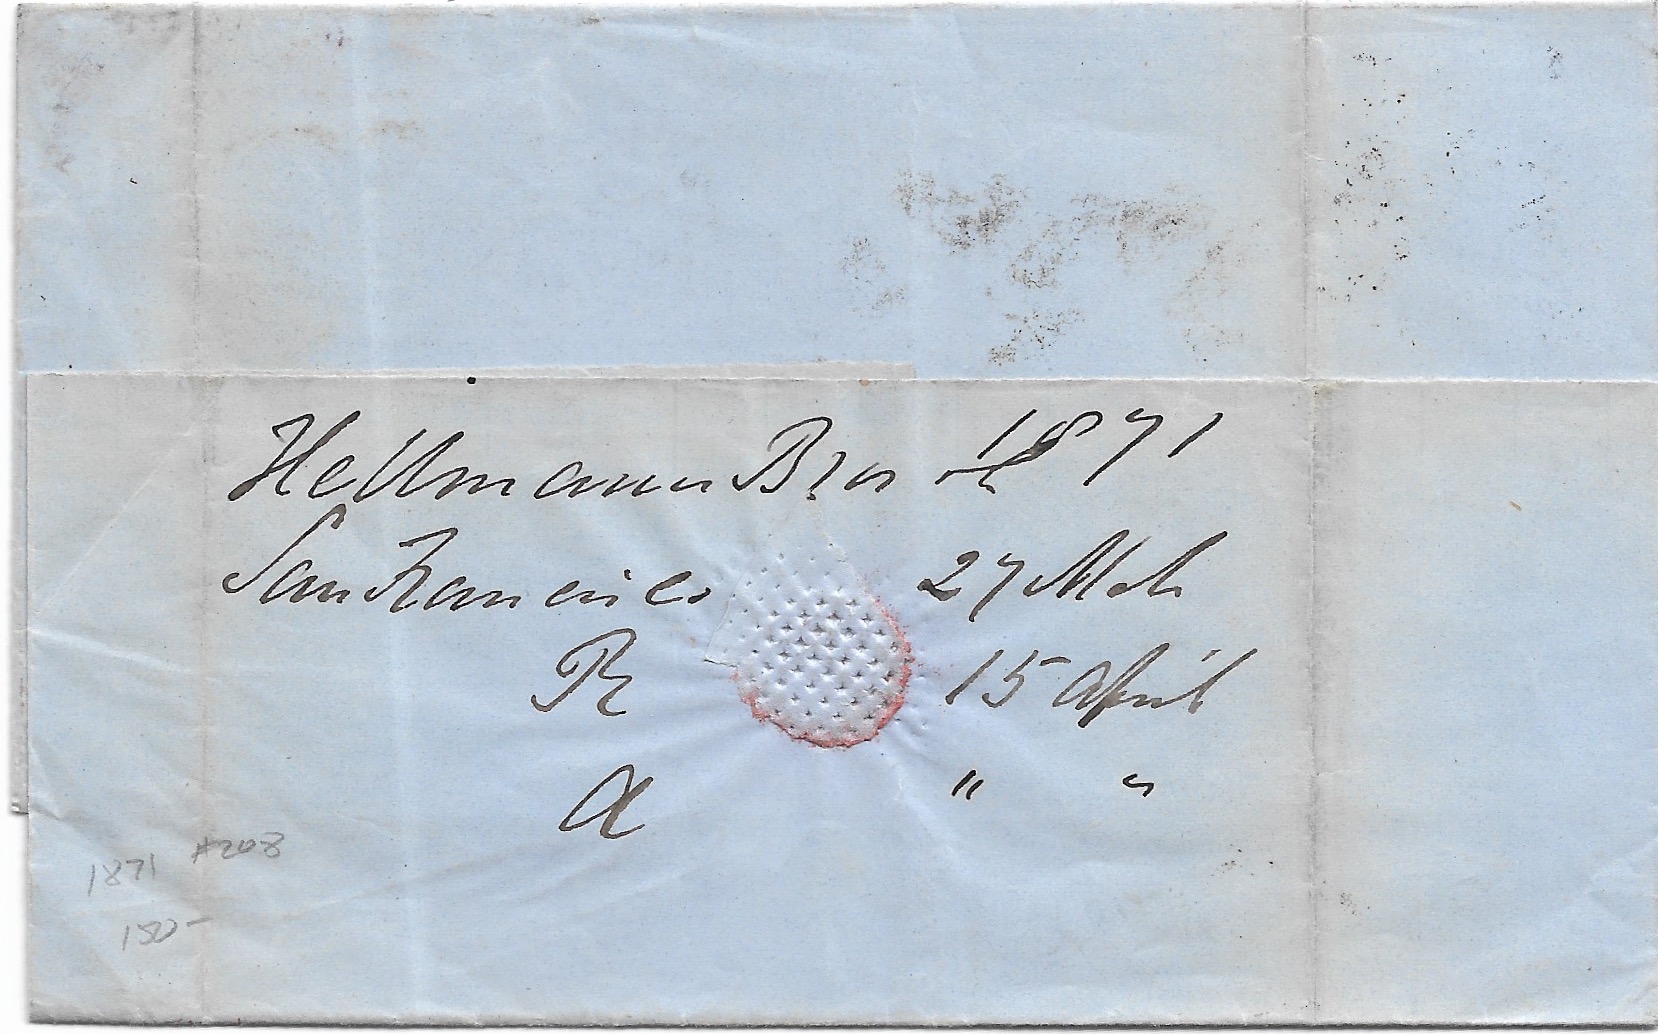 Hellmann Bros & 1871
San Francisco 27 Mch
R 15 April
A " "
1871 #208
150-